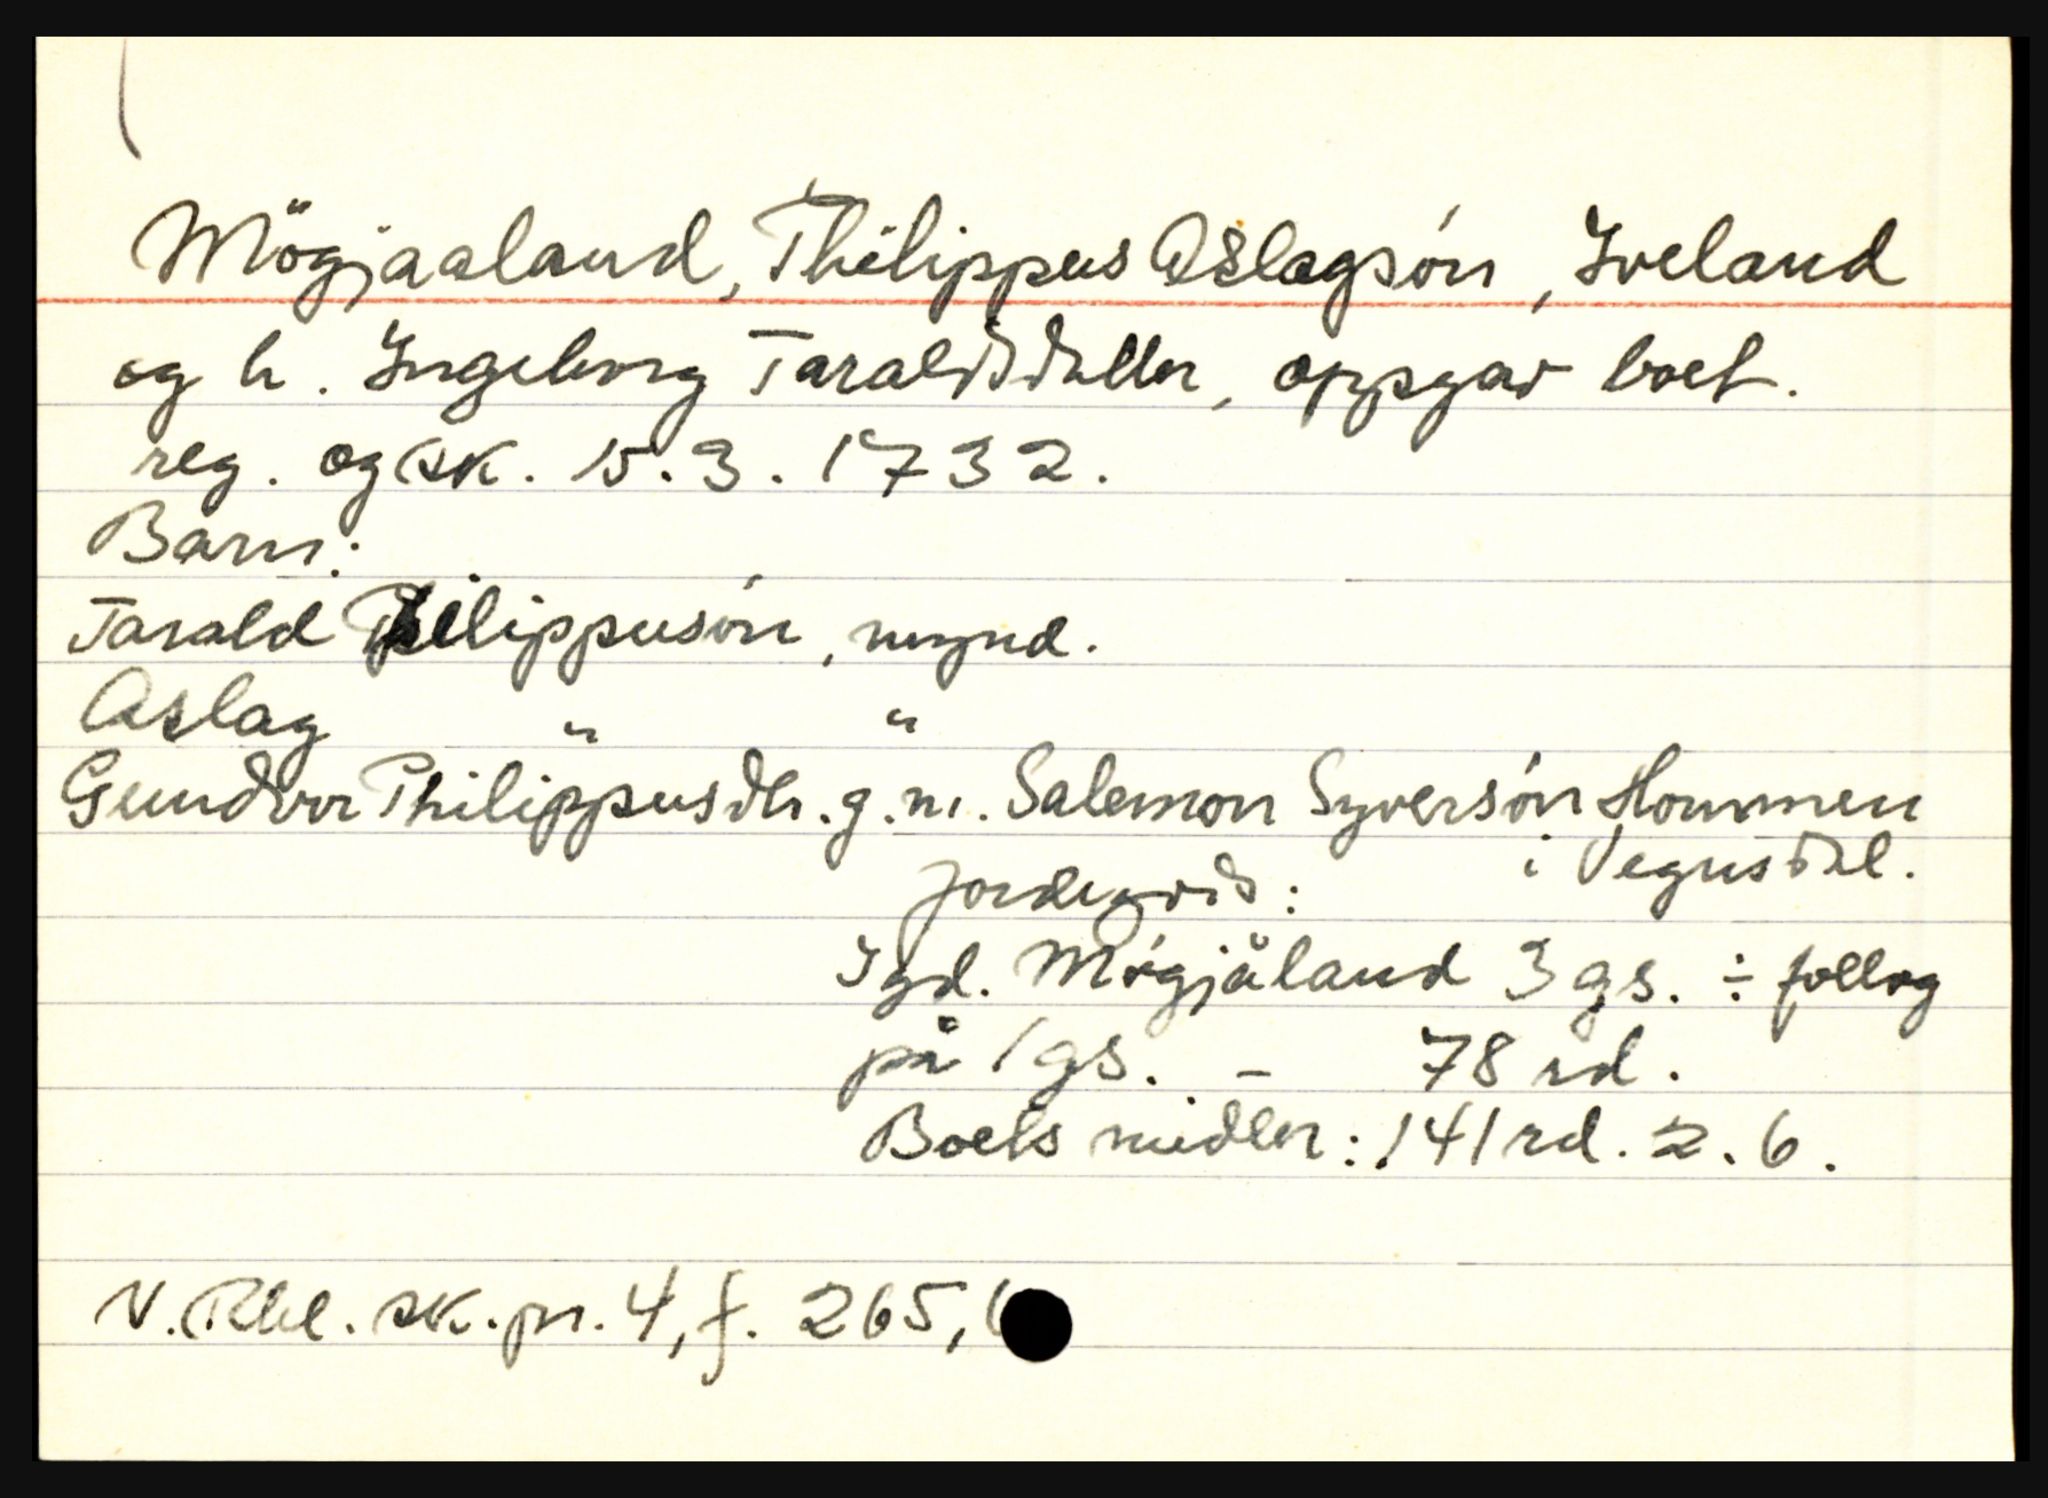 Mögjaaland, Philippus Aslagsön, Iveland
og h. Ingeborg Taraldsdatter, oppgav boet.
reg. og sk. 15.3.1732.
Barn:
Tarald Philippusön, mynd.
Aslag " "
Gundvor Philippusdtr. g.m. Salemon Syversön Hommen
i Vegusdal.
Jordegods:
Igd. Mögjåland 3 gs. ÷ follog
på 1 gs. - 78 rd.
Boets midler: 141 rd. 2. 6.
N. Rbl. sk. pr. 4, f. 265,